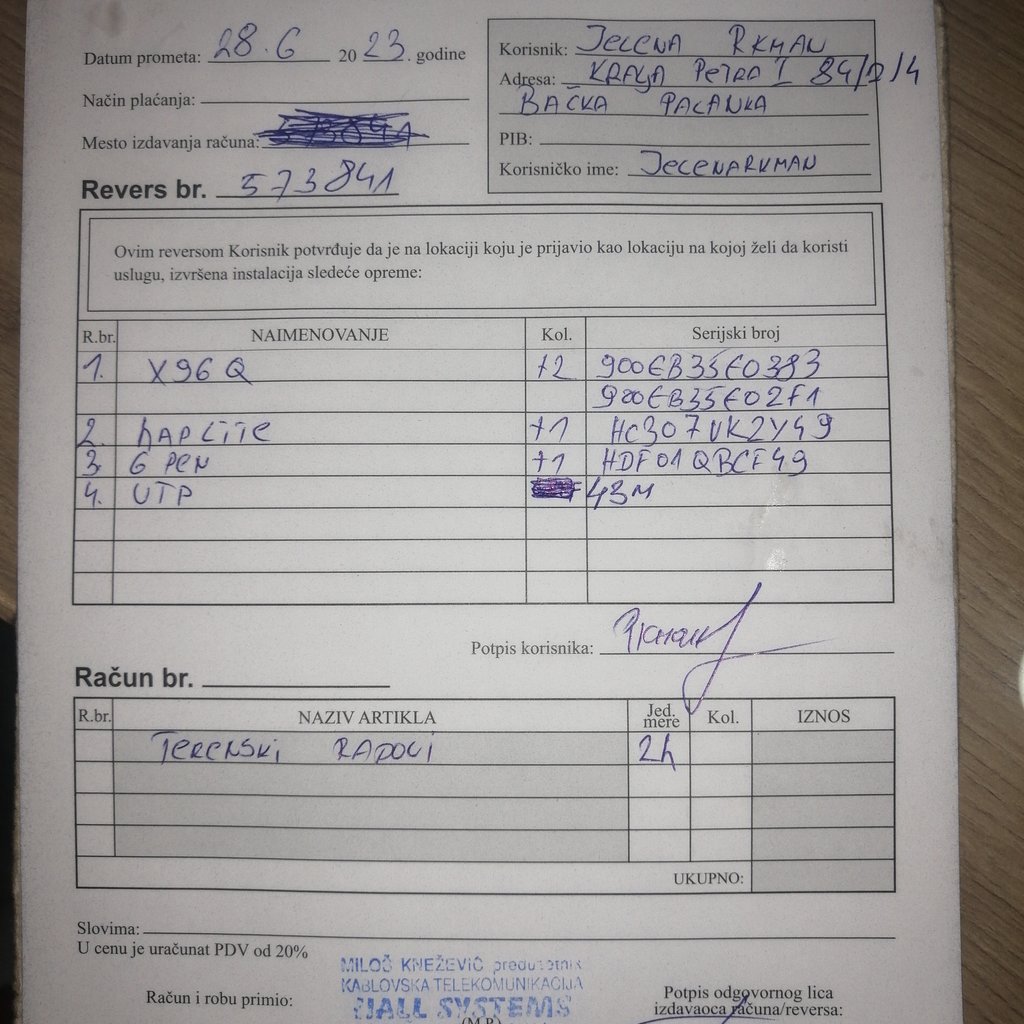 Datum prometa: 28.6 2023. godine
Korisnik: JELENA RKMAN
Adresa: KRALJA PETRA I 84/2/4
BAČKA PALANKA
Način plaćanja:
Mesto izdavanja računa:
PIB:
Korisničko ime: JELENARKMAN
Revers br. 573841
Ovim reversom Korisnik potvrđuje da je na lokaciji koju je prijavio kao lokaciju na kojoj želi da koristi
uslugu, izvršena instalacija sledeće opreme:
R.br. NAIMENOVANJE Kol. Serijski broj
1. X96Q +2 900EB35E0393
900EB35E02F1
2. hAP LITE +1 HC307VK2Y49
3. G PEN +1 HDF01QBCF49
4. UTP 43M
Potpis korisnika:
Račun br.
R.br. NAZIV ARTIKLA Jed. mere Kol. IZNOS
TERENSKI RADOVI 2h
UKUPNO:
Slovima:
U cenu je uračunat PDV od 20%
MILOŠ KNEŽEVIĆ preduzetnik
KABLOVSKA TELEKOMUNIKACIJA
SYSTEMS
Račun i robu primio:
(M.P.)
Potpis odgovornog lica
izdavaoca računa/reversa: